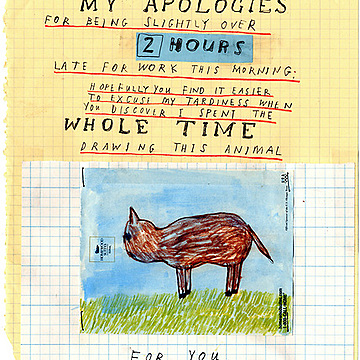 MY APOLOGIES
FOR BEING SLIGHTLY OVER
2 HOURS
LATE FOR WORK THIS MORNING.
HOPEFULLY YOU FIND IT EASIER
TO EXCUSE MY TARDINESS WHEN
YOU DISCOVER I SPENT THE
WHOLE TIME
DRAWING THIS ANIMAL
FOR YOU